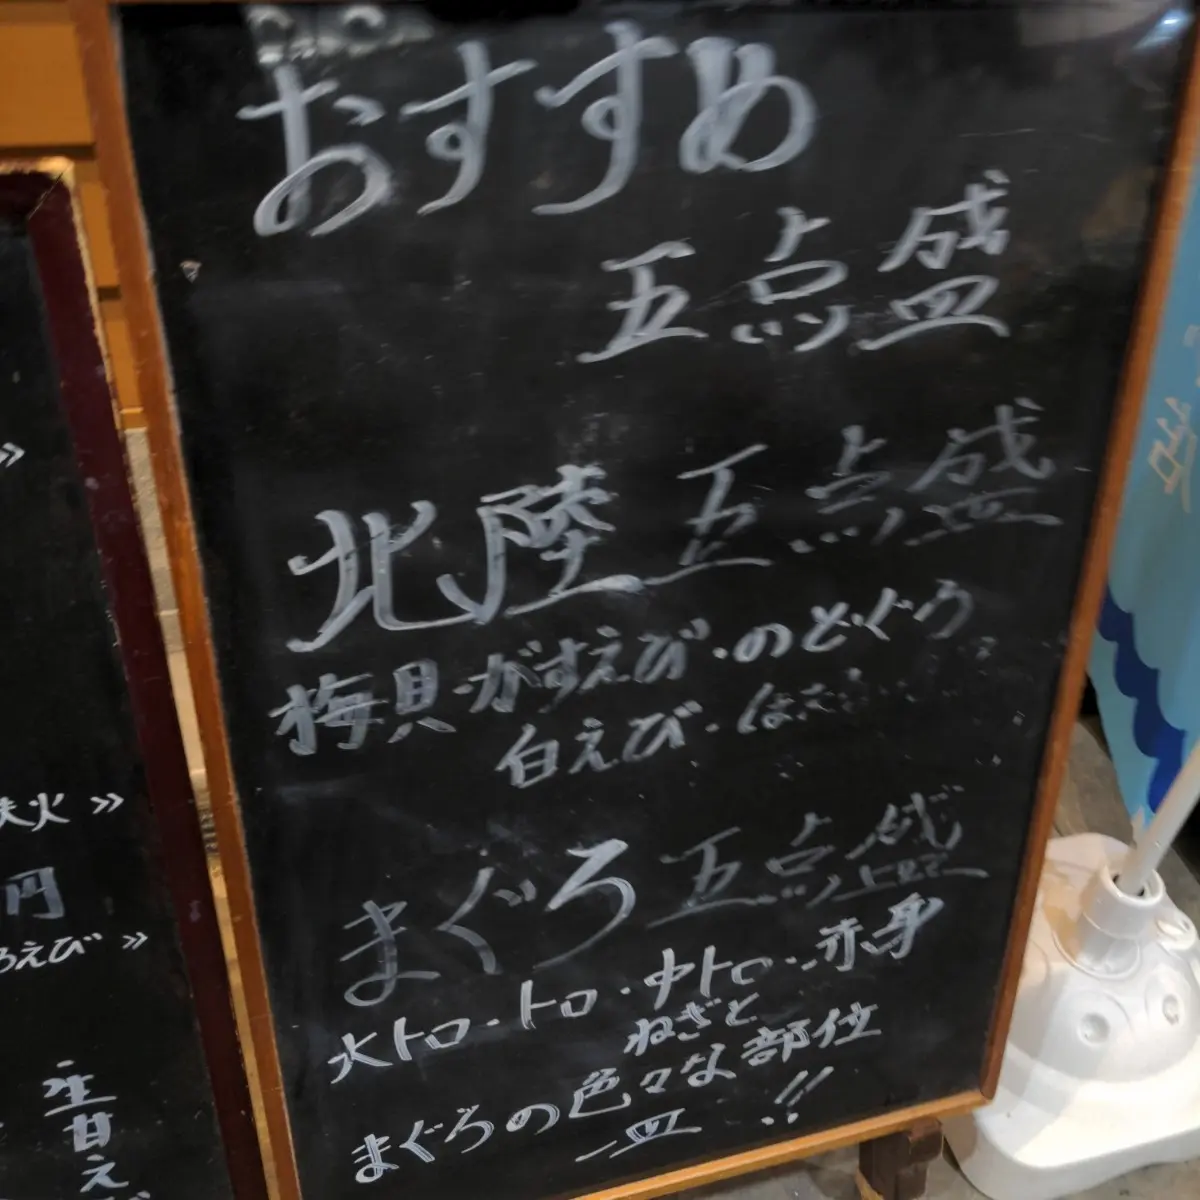 おすすめ
五点盛
北陸五点盛
梅貝・がすえび・のどぐろ
白えび・
まぐろ五点盛
大トロ・トロ・中トロ・赤身
ねぎと
まぐろの色々な部位
皿!!
火 »
円
えび »
生甘え